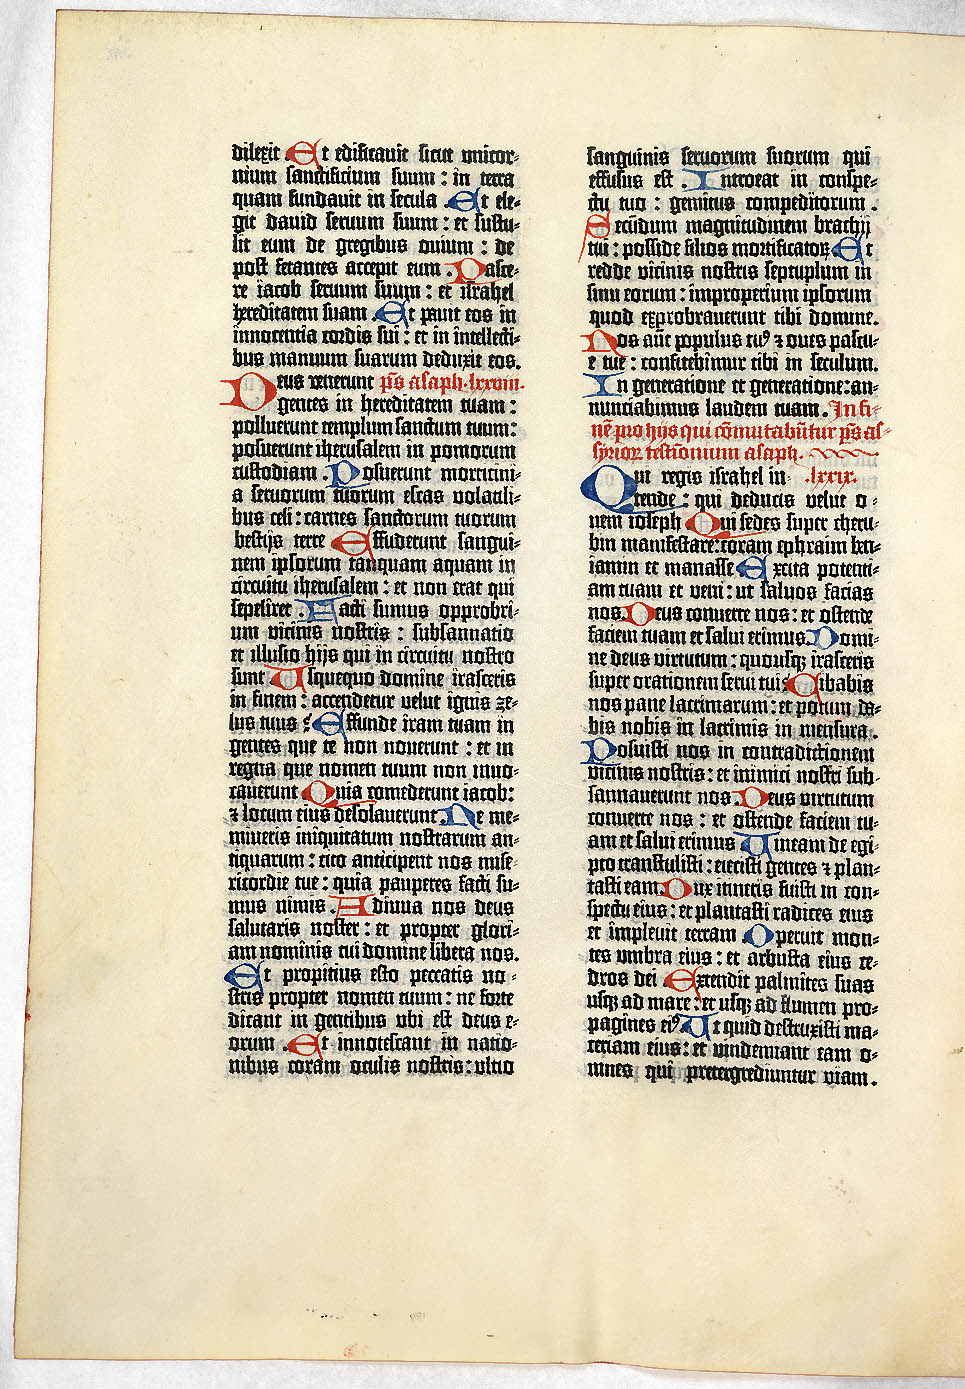 dilexit. Et edificauit sicut unicor-
nium sanctificium suum : in terra
quam fundauit in secula. Et ele-
git dauid seruum suum : et sustu-
lit eum de gregibus ouium : de
post fetantes accepit eum. Pasce-
re iacob seruum suum : et israhel
hereditatem suam. Et pauit eos in
innocentia cordis sui : et in intellecti-
bus manuum suarum deduxit eos.
Deus venerunt ps̄ asaph. lxxviii.
gentes in hereditatem tuam :
polluerunt templum sanctum tuum :
posuerunt iherusalem in pomorum
custodiam. Posuerunt morticini-
a seruorum tuorum escas volatili-
bus celi : carnes sanctorum tuorum
bestijs terre. Effuderunt sangui-
nem ipsorum tanquam aquam in
circuitu iherusalem : et non erat qui
sepeliret. Facti sumus opprobri-
um vicinis nostris : subsannatio
et illusio hijs qui in circuitu nostro
sunt. Usquequo domine irasceris
in finem : accendetur velut ignis ze-
lus tuus? Effunde iram tuam in
gentes que te non nouerunt : et in
regna que nomen tuum non inuo-
cauerunt. Quia comederunt iacob :
⁊ locum eius desolauerunt. Ne me-
mineris iniquitatum nostrarum an-
tiquarum : cito anticipent nos mise-
ricordie tue : quia pauperes facti su-
mus nimis. Adiuua nos deus
salutaris noster : et propter glori-
am nominis tui domine libera nos.
Et propitius esto peccatis no-
stris propter nomen tuum : ne forte
dicant in gentibus ubi est deus e-
orum. Et innotescant in natio-
nibus coram oculis nostris : ultio
sanguinis seruorum suorum qui
effusus est. Introeat in conspe-
ctu tuo : gemitus compeditorum.
Secūdum magnitudinem brachij
tui : posside filios mortificatoꝝ. Et
redde vicinis nostris septuplum in
sinu eorum : improperium ipsorum
quod exprobrauerunt tibi domine.
Nos aūt populus tuꝰ ⁊ oues pascu-
e tue : confitebimur tibi in seculum.
In generatione et generatione : an-
nunciabimus laudem tuam. In fi-
nē pro hijs qui cōmutabūtur ps̄ as-
syrioꝝ testimonium asaph.
Qui regis israhel in- lxxix.
tende : qui deducis velut o-
uem ioseph. Qui sedes super cheru-
bin manifestare : coram ephraim ben-
iamin et manasse. Excita potenti-
am tuam et veni : ut saluos facias
nos. Deus conuerte nos : et ostende
faciem tuam et salui erimus. Domi-
ne deus virtutum : quousqꝫ irasceris
super orationem serui tui? Cibabis
nos pane lacrimarum : et potum da-
bis nobis in lacrimis in mensura.
Posuisti nos in contradictionem
vicinis nostris : et inimici nostri sub-
sannauerunt nos. Deus virtutum
conuerte nos : et ostende faciem tu-
am et salui erimus. Uineam de egi-
pto transtulisti : eiecisti gentes ⁊ plan-
tasti eam. Dux itineris fuisti in con-
spectu eius : et plantasti radices eius
et impleuit terram. Operuit mon-
tes umbra eius : et arbusta eius ce-
dros dei. Extendit palmites suas
usqꝫ ad mare : et usqꝫ ad flumen pro-
pagines eiꝰ. Ut quid destruxisti ma-
ceriam eius : et vindemiant eam o-
mnes qui pretergrediuntur viam.